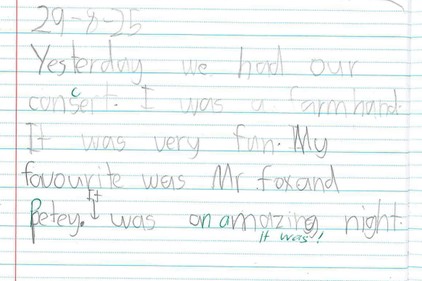 29-8-25
Yesterday we had our
consert. I was a farmhand.
It was very fun. My
favourite was Mr fox and
Petey. It was an amazing night.
It was!